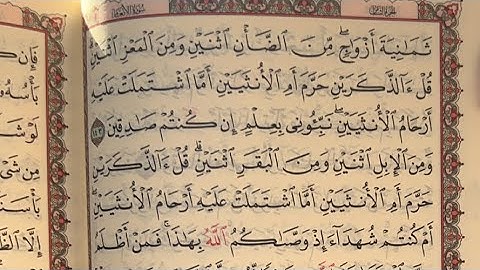 الجزء الثامن سورة الأنعام
ثَمَٰنِيَةَ أَزْوَٰجٍۖ مِّنَ ٱلضَّأْنِ ٱثْنَيْنِ وَمِنَ ٱلْمَعْزِ ٱثْنَيْنِۗ
قُلْ ءَآلذَّكَرَيْنِ حَرَّمَ أَمِ ٱلْأُنثَيَيْنِ أَمَّا ٱشْتَمَلَتْ عَلَيْهِ
أَرْحَامُ ٱلْأُنثَيَيْنِۖ نَبِّـُٔونِى بِعِلْمٍ إِن كُنتُمْ صَٰدِقِينَ ١٤٣
وَمِنَ ٱلْإِبِلِ ٱثْنَيْنِ وَمِنَ ٱلْبَقَرِ ٱثْنَيْنِۗ قُلْ ءَآلذَّكَرَيْنِ
حَرَّمَ أَمِ ٱلْأُنثَيَيْنِ أَمَّا ٱشْتَمَلَتْ عَلَيْهِ أَرْحَامُ ٱلْأُنثَيَيْنِۖ
أَمْ كُنتُمْ شُهَدَآءَ إِذْ وَصَّىٰكُمُ ٱللَّهُ بِهَٰذَاۚ فَمَنْ أَظْلَمُ
فَإِن
بَأْسُهُ
لَوْ شَا
مِن شَىْ
بَأْسَنَ
إِلَّا ٱلظَّ